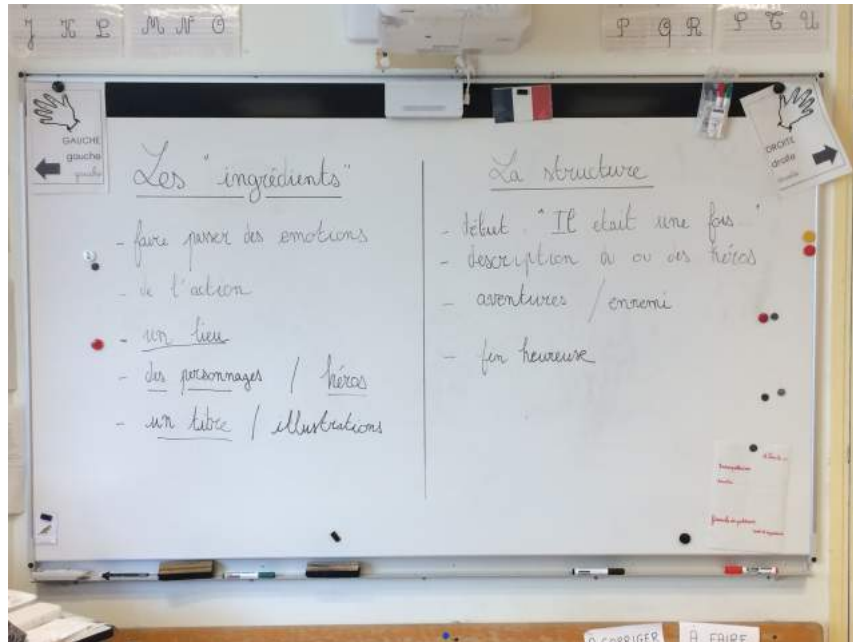 J K L M N O
P Q R S T U
GAUCHE
gauche
gauche
DROITE
droite
droite
Les "ingrédients"
- faire passer des emotions
- de l'action
- un lieu
- des personnages / héros
- un titre / illustrations
La structure
- début "Il etait une fois..."
- description du ou des héros
- aventures / ennemi
- fin heureuse
À CORRIGER
À FAIRE